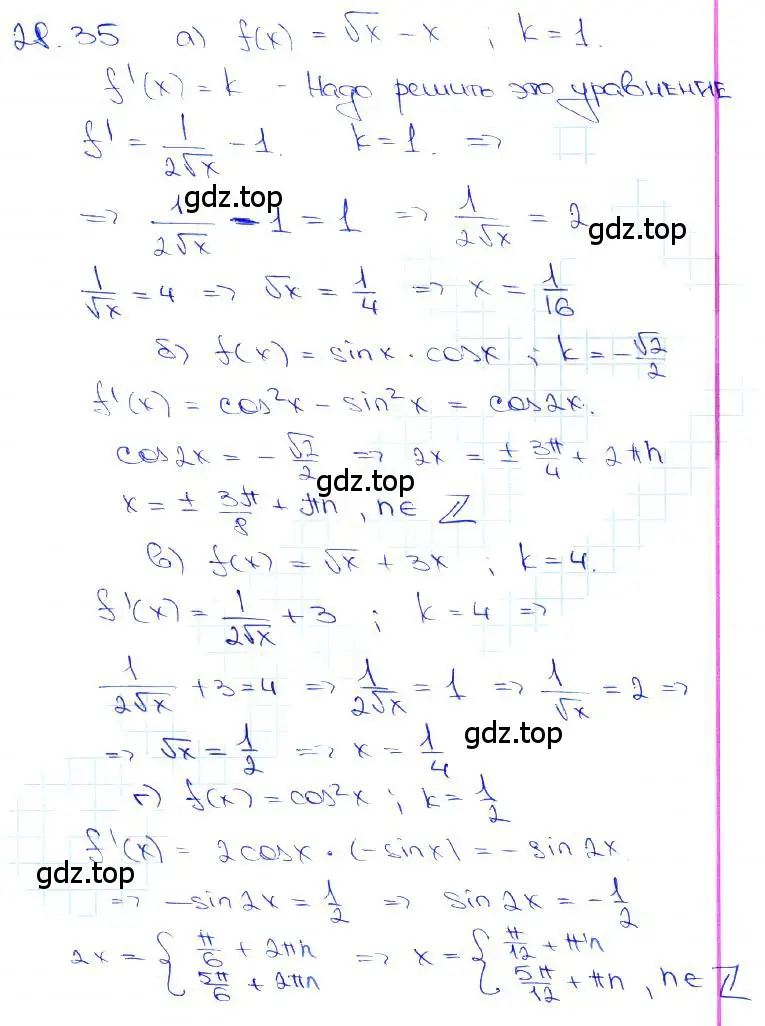 28.35 а) f(x) = √x − x ; k = 1.
f'(x) = k − Надо решить это уравнение
f' = 1/(2√x) − 1. k = 1. =>
=> 1/(2√x) − 1 = 1 => 1/(2√x) = 2
gdz.top
gdz.top
1/√x = 4 => √x = 1/4 => x = 1/16
б) f(x) = sinx · cosx ; k = −√2/2
f'(x) = cos²x − sin²x = cos2x.
cos2x = −√2/2 => 2x = ± 3π/4 + 2πn
gdz.top
x = ± 3π/8 + πn , n∈ℤ
в) f(x) = √x + 3x ; k = 4.
f'(x) = 1/(2√x) + 3 ; k = 4 =>
1/(2√x) + 3 = 4 => 1/(2√x) = 1 => 1/√x = 2 =>
=> √x = 1/2 => x = 1/4
gdz.top
г) f(x) = cos²x ; k = 1/2
f'(x) = 2cosx · (−sinx) = −sin2x
gdz.top
=> −sin2x = 1/2 => sin2x = −1/2
2x = { π/6 + 2πn ; 5π/6 + 2πn => x = { π/12 + πn ; 5π/12 + πn , n∈ℤ